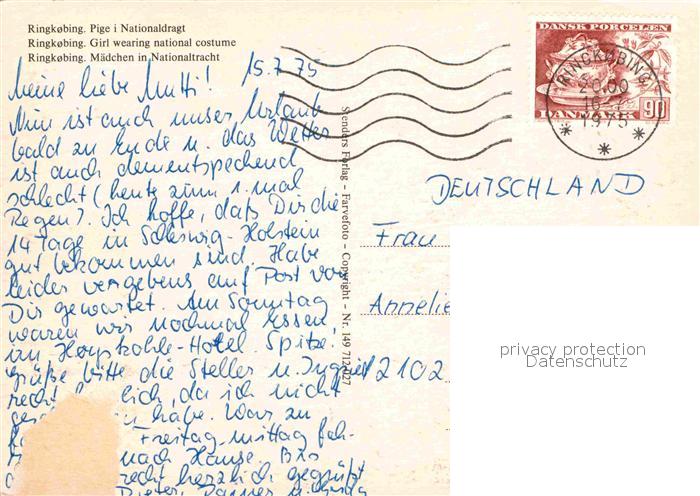 Ringkøbing. Pige i Nationaldragt
Ringkøbing. Girl wearing national costume
Ringkøbing. Mädchen in Nationaltracht
Meine liebe Mutti! 15.7.75
Nun ist auch unser Urlaub
bald zu Ende u. das Wetter
ist auch dementspechend
schlecht (heute zum 1. mal
Regen). Ich hoffe, daß Dir die
14 Tage in Scleswig-Holstein
gut bekommen sind. Habe
leider vergebens auf Post von
Dir gewartet. Am Sonntag
waren wir nochmal Essen,
im Hotel. Spitze!
Grüße bitte die Steller u. Ingrid
recht lich, da ich nicht
habe. War zu
Freitag-mittag fah-
nach Hause. Bis
recht herzlich gegrüßt
Dieter,
Stenders Forlag – Farvefoto – Copyright – Nr. 149 712/027
DANSK PORCELÆN
DANMARK 90
RINGKØBING
20.00
16.7
1975
DEUTSCHLAND
Frau
Annelie
2102
privacy protection
Datenschutz